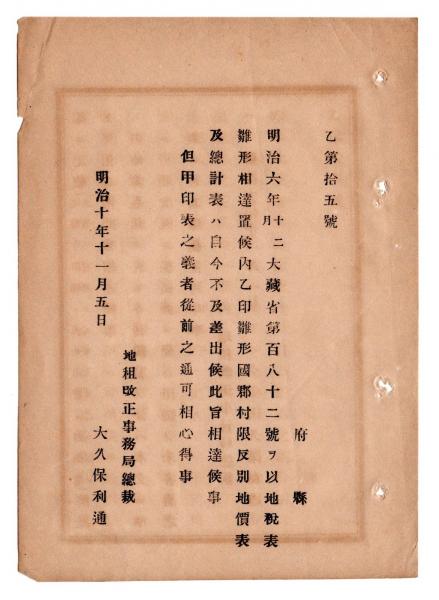 乙第拾五號
府縣
明治六年十二月大藏省第百八十二號ヲ以地税表
雛形相達置候内乙印雛形國郡村限反別地價表
及總計表ハ自今不及差出候此旨相達候事
但甲印表之義者從前之通可相心得事
明治十年十一月五日
地租改正事務局總裁
大久保利通